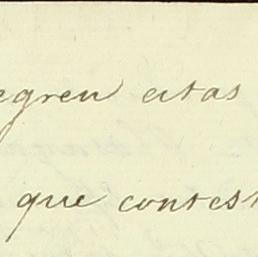 egren citas
que contest